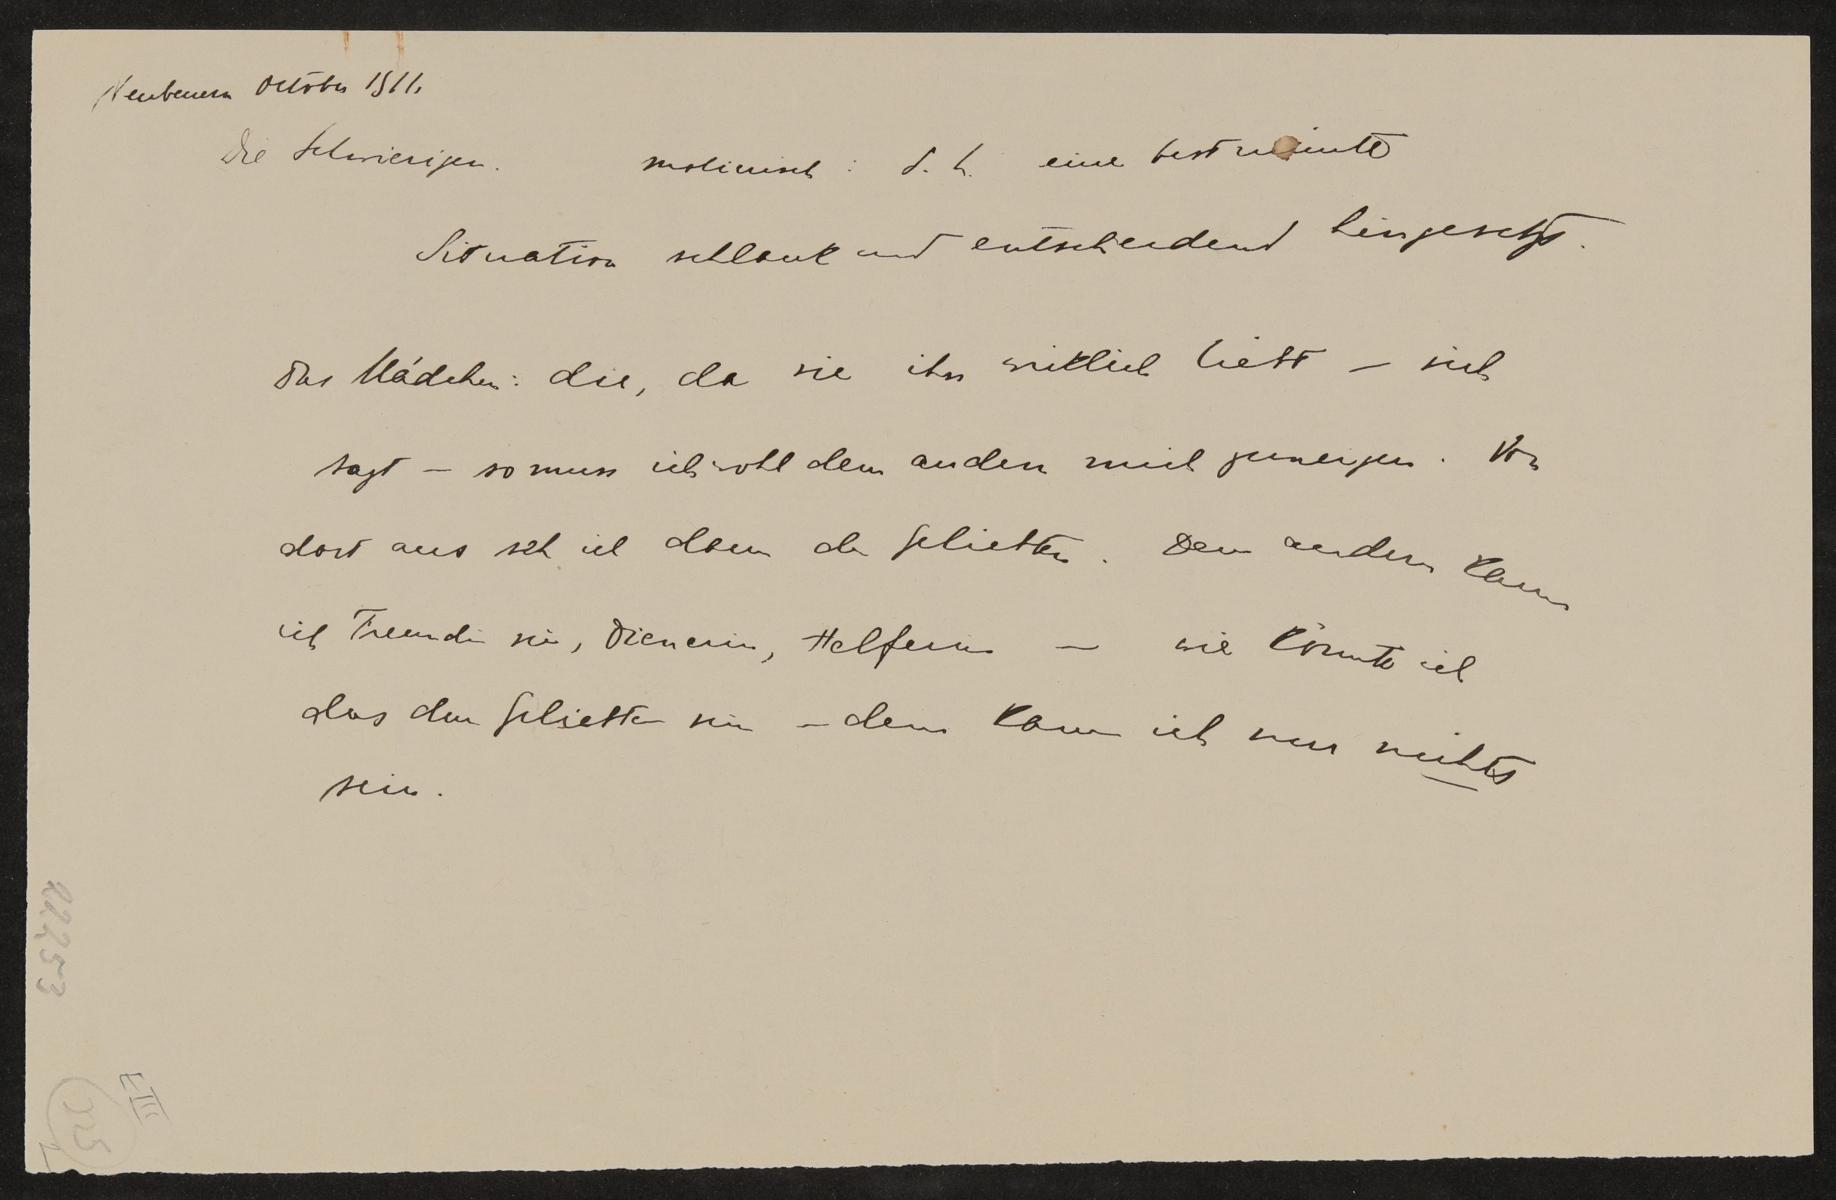 Neubeuern October 1911.
Die Schwierigen. molierisch: d. h. eine bestimmte
Situation schlank und entscheidend hingesetzt.
Das Mädchen: die, da sie ihn wirklich liebt – sich
sagt – so muss ich wohl dem andern mich zuneigen. Von
dort aus seh ich dann den Geliebten. Dem andern kann
ich Freundin sein, Dienerin, Helferin – wie könnte ich
das dem Geliebten sein – dem kann ich nur nichts
sein.
22253